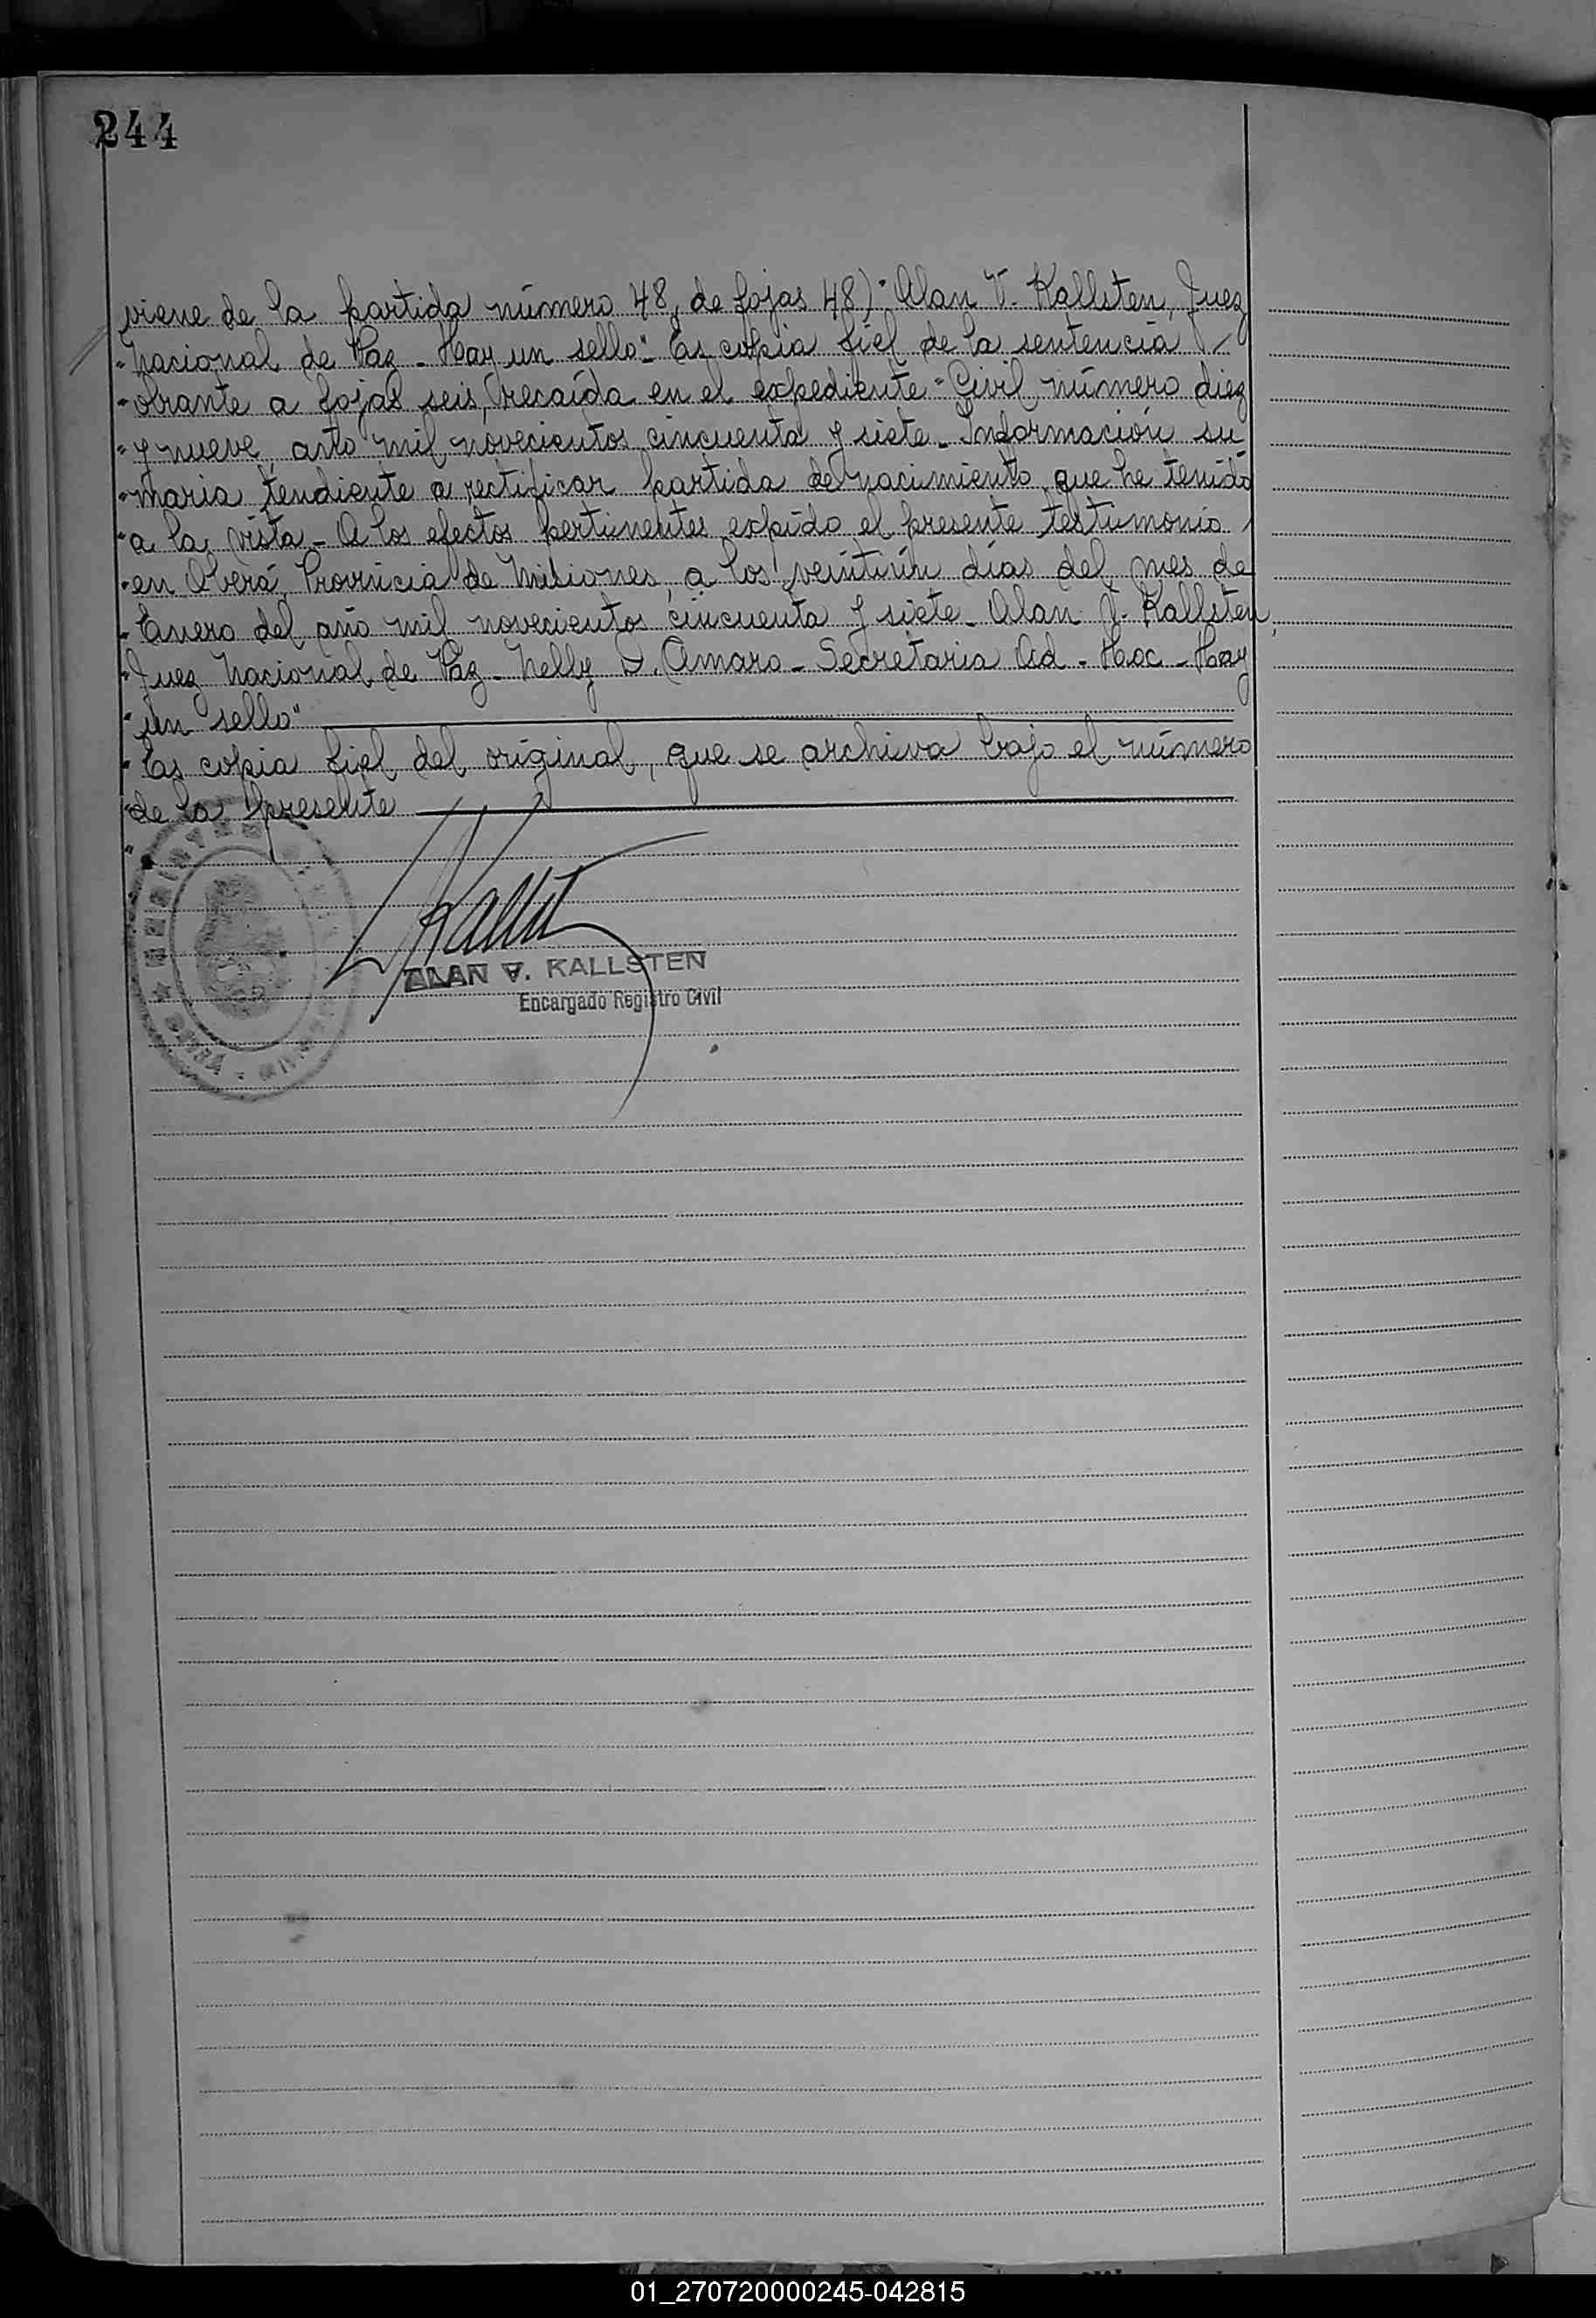 244
viene de la partida número 48, de fojas 48)" Alan V. Kallsten, Juez
"Nacional de Paz - Hay un sello". Es copia fiel de la sentencia
"obrante a fojas seis, recaída en el expediente "Civil número diez
"y nueve, año mil novecientos cincuenta y siete - Información su
"maria tendiente a rectificar partida de nacimiento que he tenido
"a la vista - A los efectos pertinentes expido el presente testimonio
"en Oberá, Provincia de Misiones, a los veintiún días del mes de
"Enero del año mil novecientos cincuenta y siete - Alan V. Kallsten,
"Juez Nacional de Paz - Nelly D. Amaro - Secretaria Ad - Hoc - Hay
"un sello"
"Es copia fiel del original, que se archiva bajo el número
"de la presente
ALAN V. KALLSTEN
Encargado Registro Civil
01_270720000245-042815